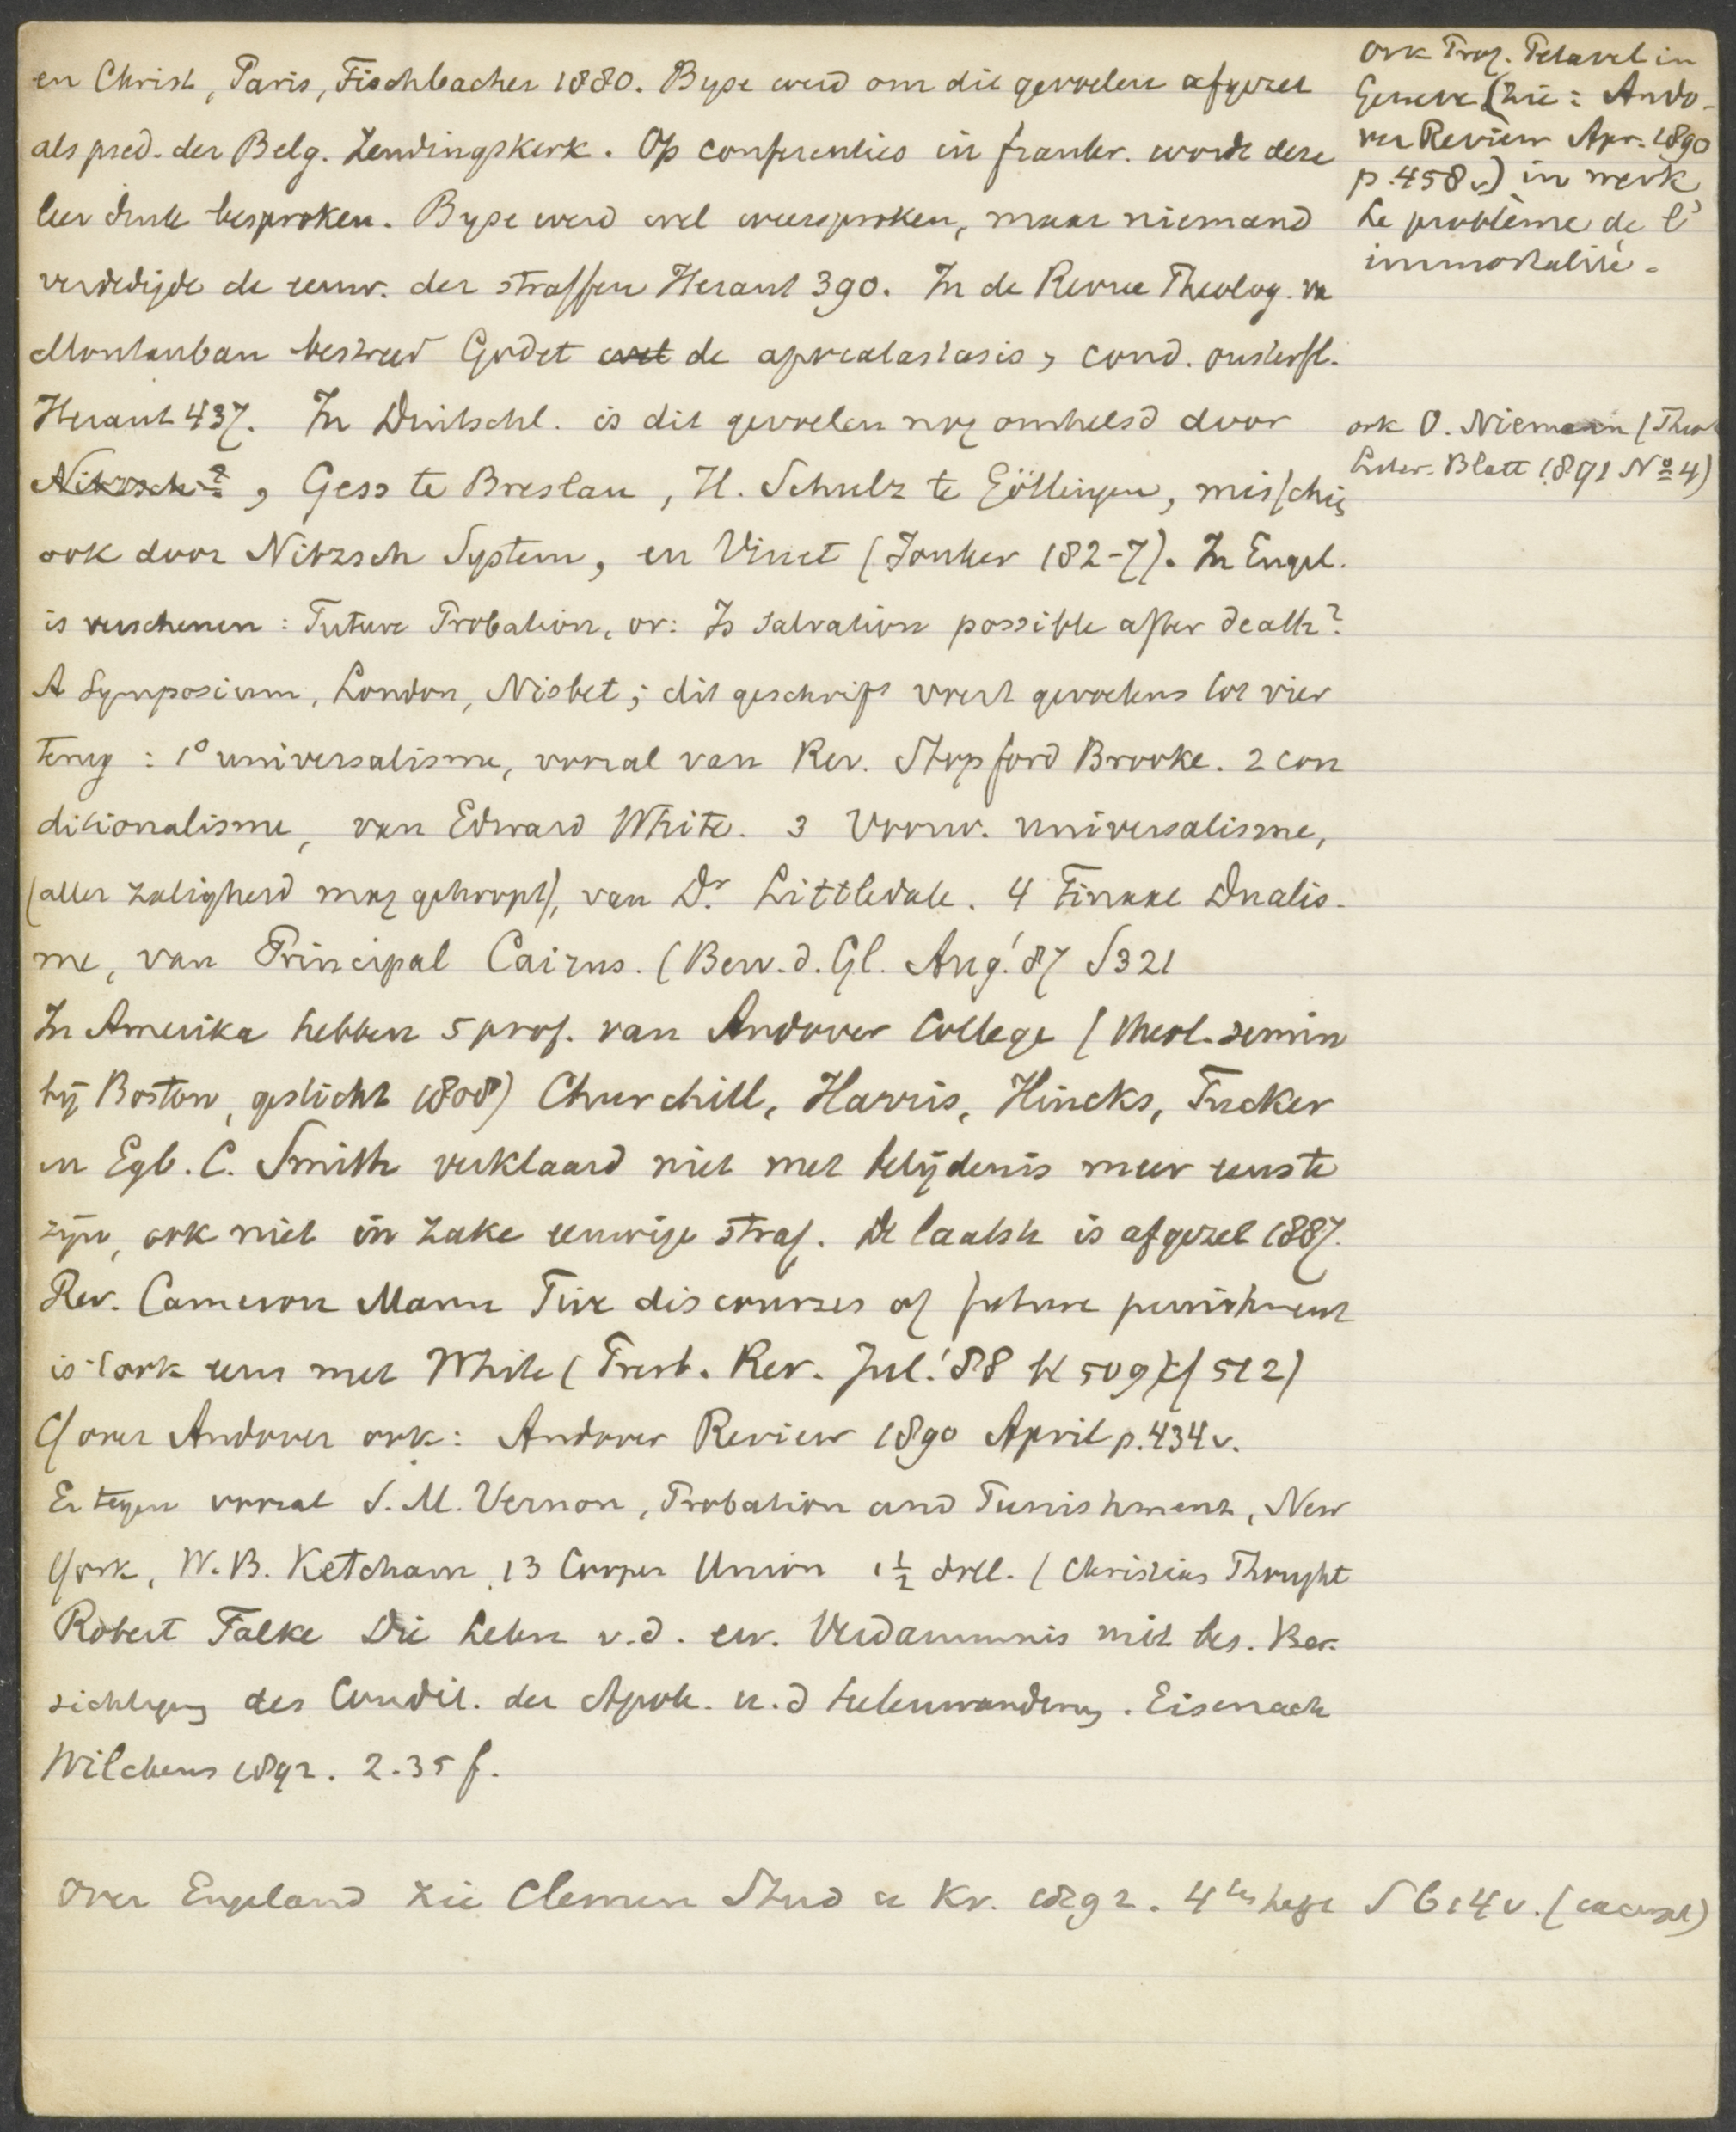 en Christ, Paris, Fischbacher 1880. Byse werd om dit gevoelen afgezet
als pred. der Belg. Zendingskerk. Op conferenties in frankr. wordt deze
leer druk besproken. Byse werd wel weersproken, maar niemand
verdedigde de eeuw. der straffen Heraut 390. In de Revue Theolog. va
Montauban bestreed Godet de apokatastasis, cond. onsterfl.
Heraut 437. In Duitschl. is dit gevoelen nog omhelsd door
Nitzsch ?, Gess te Breslau, H. Schulz te Göttingen, misschie
ook door Nitzsch System, en Vinet (Jonker 182-7). In Engel.
is verschenen: Future Probation, or: Is salvation possible after death?
A Symposium, London, Nisbet; dit geschrift voert gevoelens tot vier
terug: 1° universalisme, vooral van Rev. Stopford Brooke. 2 con
ditionalisme, van Edward White. 3 Voorw. universalisme,
(aller zaligheid mag gehoopt), van Dr. Littledale. 4 Finaal Dualis-
me, van Principal Cairns. (Bew. d. Gl. Aug.' 87 S 321
In Amerika hebben 5 prof. van Andover College (theol. semin
bij Boston, gesticht 1808) Churchill, Harris, Hincks, Tucker
en Egb. C. Smith verklaard niet met belijdenis meer eens te
zijn, ook niet in zake eeuwige straf. De laatste is afgezet 1887.
Rev. Cameron Mann Five discourses of future punishment
is ook eens met White (Presb. Rev. Jul.' 88 bl 509) cf 512)
Cf over Andover ook: Andover Review 1890 April p. 434 v.
Er tegen vooral S. M. Vernon, Probation and Punishment, New
York, W. B. Ketcham, 13 Cooper Union 1 1/2 doll. (Christian Thought
Robert Falke Die Lehre v. d. ew. Verdammnis mit bes. Ber.
sichtigung des Condit. der Apok. u. d Seelenwanderung. Eisenach
Wilckens 1892. 2.35 f.
Over Engeland zie Clemen Stud u Kr. 1892. 4tes heft S 614 v.
ook Prof. Petavel in
Geneve (zie: Ando-
ver Review Apr. 1890
p. 458 v) in werk
Le problème de l'
immortalité.
ook O. Niemann (Theol
Liter. Blatt 1891 No 4)